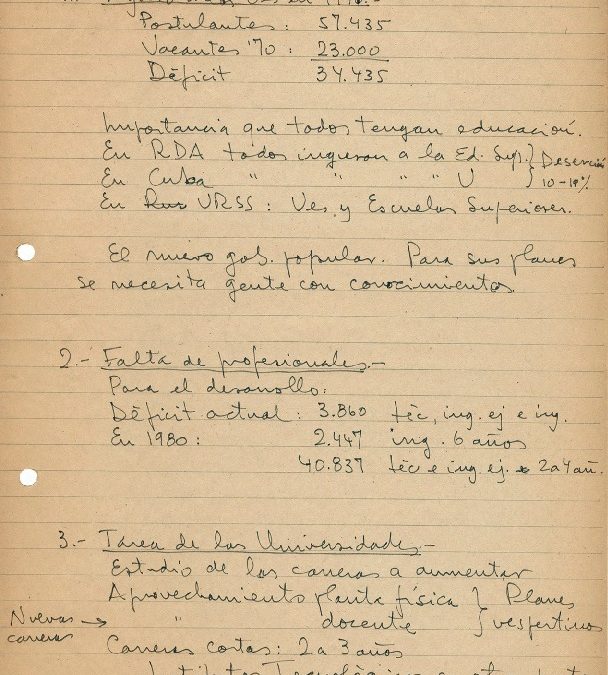 Postulantes: 57.435
Vacantes '70: 23.000
Déficit 34.435
Importancia que todos tengan educación.
En RDA todos ingresan a la Ed. Sup. } Deserción
En Cuba " " " " U } 10-1 %
En Rus URSS: Ues. y Escuelas Superiores.
El nuevo gob. popular. Para sus planes
se necesita gente con conocimientos
2.- Falta de profesionales.-
Para el desarrollo:
Déficit actual: 3.860 téc, ing. ej e ing.
En 1980: 2.447 ing. 6 años
40.837 téc e ing. ej. 2a4 añ.
3.- Tarea de las Universidades.-
Estudio de las carreras a aumentar
Aprovechamiento planta física } Planes
Nuevas → " docente } vespertinos
carreras
Carreras cortas: 2 a 3 años